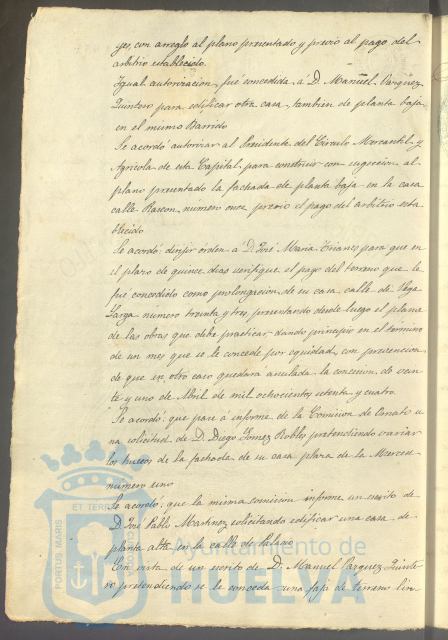 yes, con arreglo al plano presentado y previo al pago del
arbitrio establecido.
Igual autorizacion, fué concedida, á D. Manuel Vazquez
Quintero para edificar otra casa, tambien de planta baja
en el mismo Barrido
Se acordó autorizar al Presidente del Circulo Mercantil y
Agricola de esta Capital, para construir con sugecion al
plano presentado la fachada de planta baja en la casa
calle Rascon, numero once, previo el pago del arbitrio esta
blecido
Se acordó dirijir órden á D. José Maria Trianes para que en
el plazo de quince dias verifique el pago del terreno que le
fué concedido como prolongacion de su casa calle de Vega
Larga numero treinta y tres, presentando desde luego el plano
de las obras que debe practicar, dando principio en el termino
de un mes que se le concede por equidad, con prevencion
de que en otro caso quedara anulada la concesion de vein
te y uno de Abril de mil ochocientos setenta y cuatro.
Se acordó: que pase á informe de la Comision de Ornato u
na solicitud de D. Diego Gomez Robles pretendiendo variar
los huecos de la fachada de su casa plaza de la Merced
numero uno
Se acordó: que la misma comision informe un escrito de
D. José Pablo Martinez solicitando edificar una casa de
planta alta en la calle de Palacio
Con vista de un escrito de D. Manuel Vazquez Quinte
ro pretendiendo se le conceda una faja de terreno
PORTUS MARIS
ET TERRAE
CUSTODIA
Ayuntamiento de
HUELVA